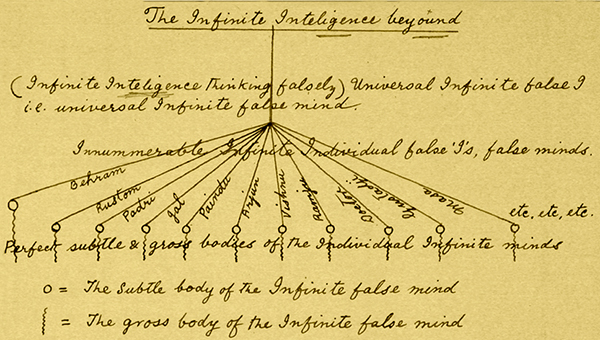 The Infinite Inteligence beyound
(Infinite Inteligence thinking falsely) Universal Infinite false I
i.e. universal Infinite false mind.
Innummerable Infinite Individual false 'I's, false minds.
Behram Rustom Padri Jal Pandu Arjun Vishnu Ramju Gustadji Masa
etc, etc, etc.
Perfect subtle & gross bodies of the Individual Infinite minds
o = The Subtle body of the Infinite false mind
= The gross body of the Infinite false mind